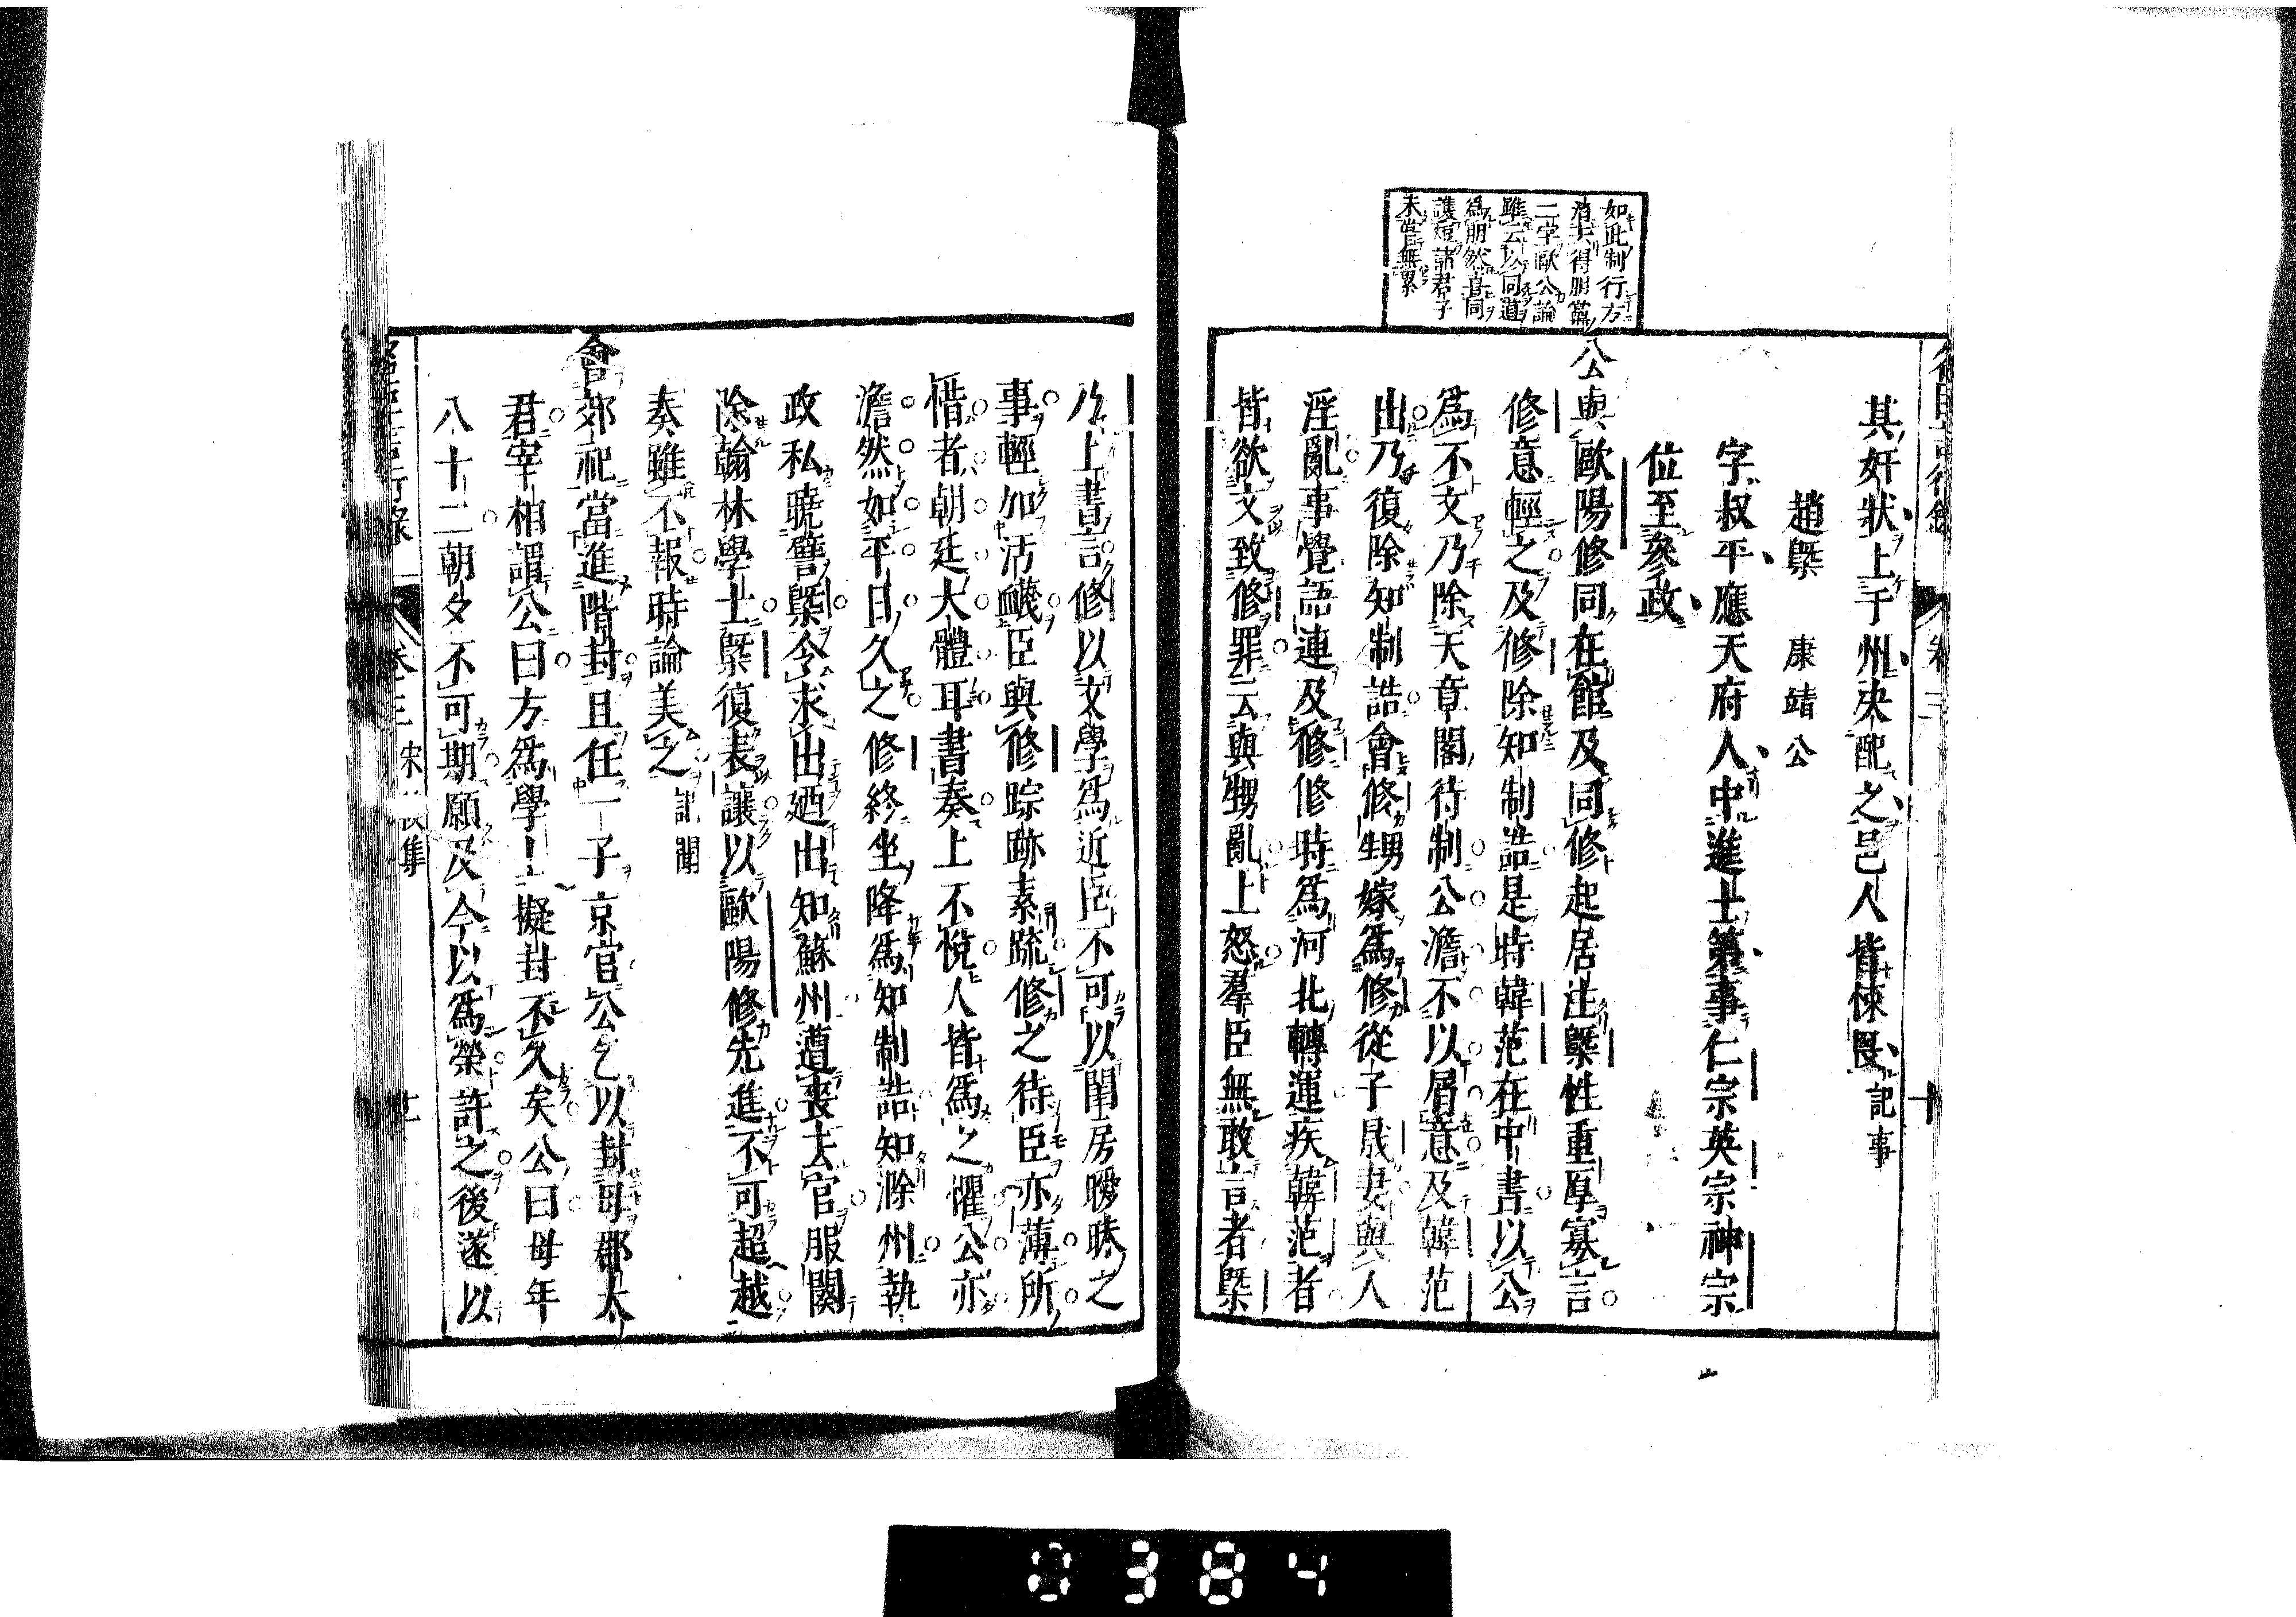 如此制行方
消夫得朋黨
二字歐公論
雖云以同道
為朋然喜同
護短諸君子
未嘗無累
其奸狀上于州决配之邑人皆悚畏記事
趙槩 康靖公
字叔平應天府人中進士第事仁宗英宗神宗
位至參政
公與歐陽修同在館及同修起居注槩性重厚寡言
修意輕之及修除知制誥是時韓范在中書以公
爲不文乃除天章閣待制公澹不以屑意及韓范
出乃復除知制誥會修甥嫁爲修從子晟妻與人
淫亂事覺語連及修修時爲河北轉運疾韓范者
皆欲文致修罪云與甥亂上怒羣臣無敢言者槩
乃上書言修以文學爲近臣不可以閨房曖昧之
事輕加汚衊臣與修踪跡素疏修之待臣亦薄所
惜者朝廷大體耳書奏上不悅人皆爲之懼公亦
澹然如平日久之修終坐降爲知制誥知滁州執
政私曉譬槩令求出廼出知蘇州遭喪去官服闋
除翰林學士槩復表讓以歐陽修先進不可超越
奏雖不報時論美之記聞
會郊祀當進階封且任一子京官公乞以封母郡太
君宰相謂公曰方爲學士擬封不久矣公曰母年
八十二朝夕不可期願及今以爲榮許之後遂以
卷三